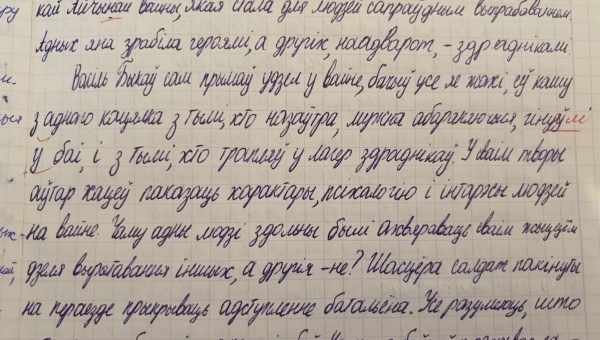 кай Айчыннай вайны, якая стала для людзей сапраўдным выпрабаваннем.
Адных яна зрабіла героямі, а другіх, наадварот, – здраднікамі.
Васіль Быкаў сам прымаў удзел у вайне, бачыў усе яе жахі, еў кашу
з аднаго кацялка з тымі, хто назаўтра, мужна абараняючыся, гінулі
ў баі, і з тымі, хто трапляў у лагер здраднікаў. У сваім творы
аўтар хацеў паказаць характары, псіхалогію і інтарэсы людзей
на вайне. Чаму адны людзі здольны былі ахвяраваць сваім жыццём
дзеля выратавання іншых, а другія – не? Шасцёра салдат пакінуты
на пераездзе прыкрываць адступленне батальёна. Не разумеюць, што